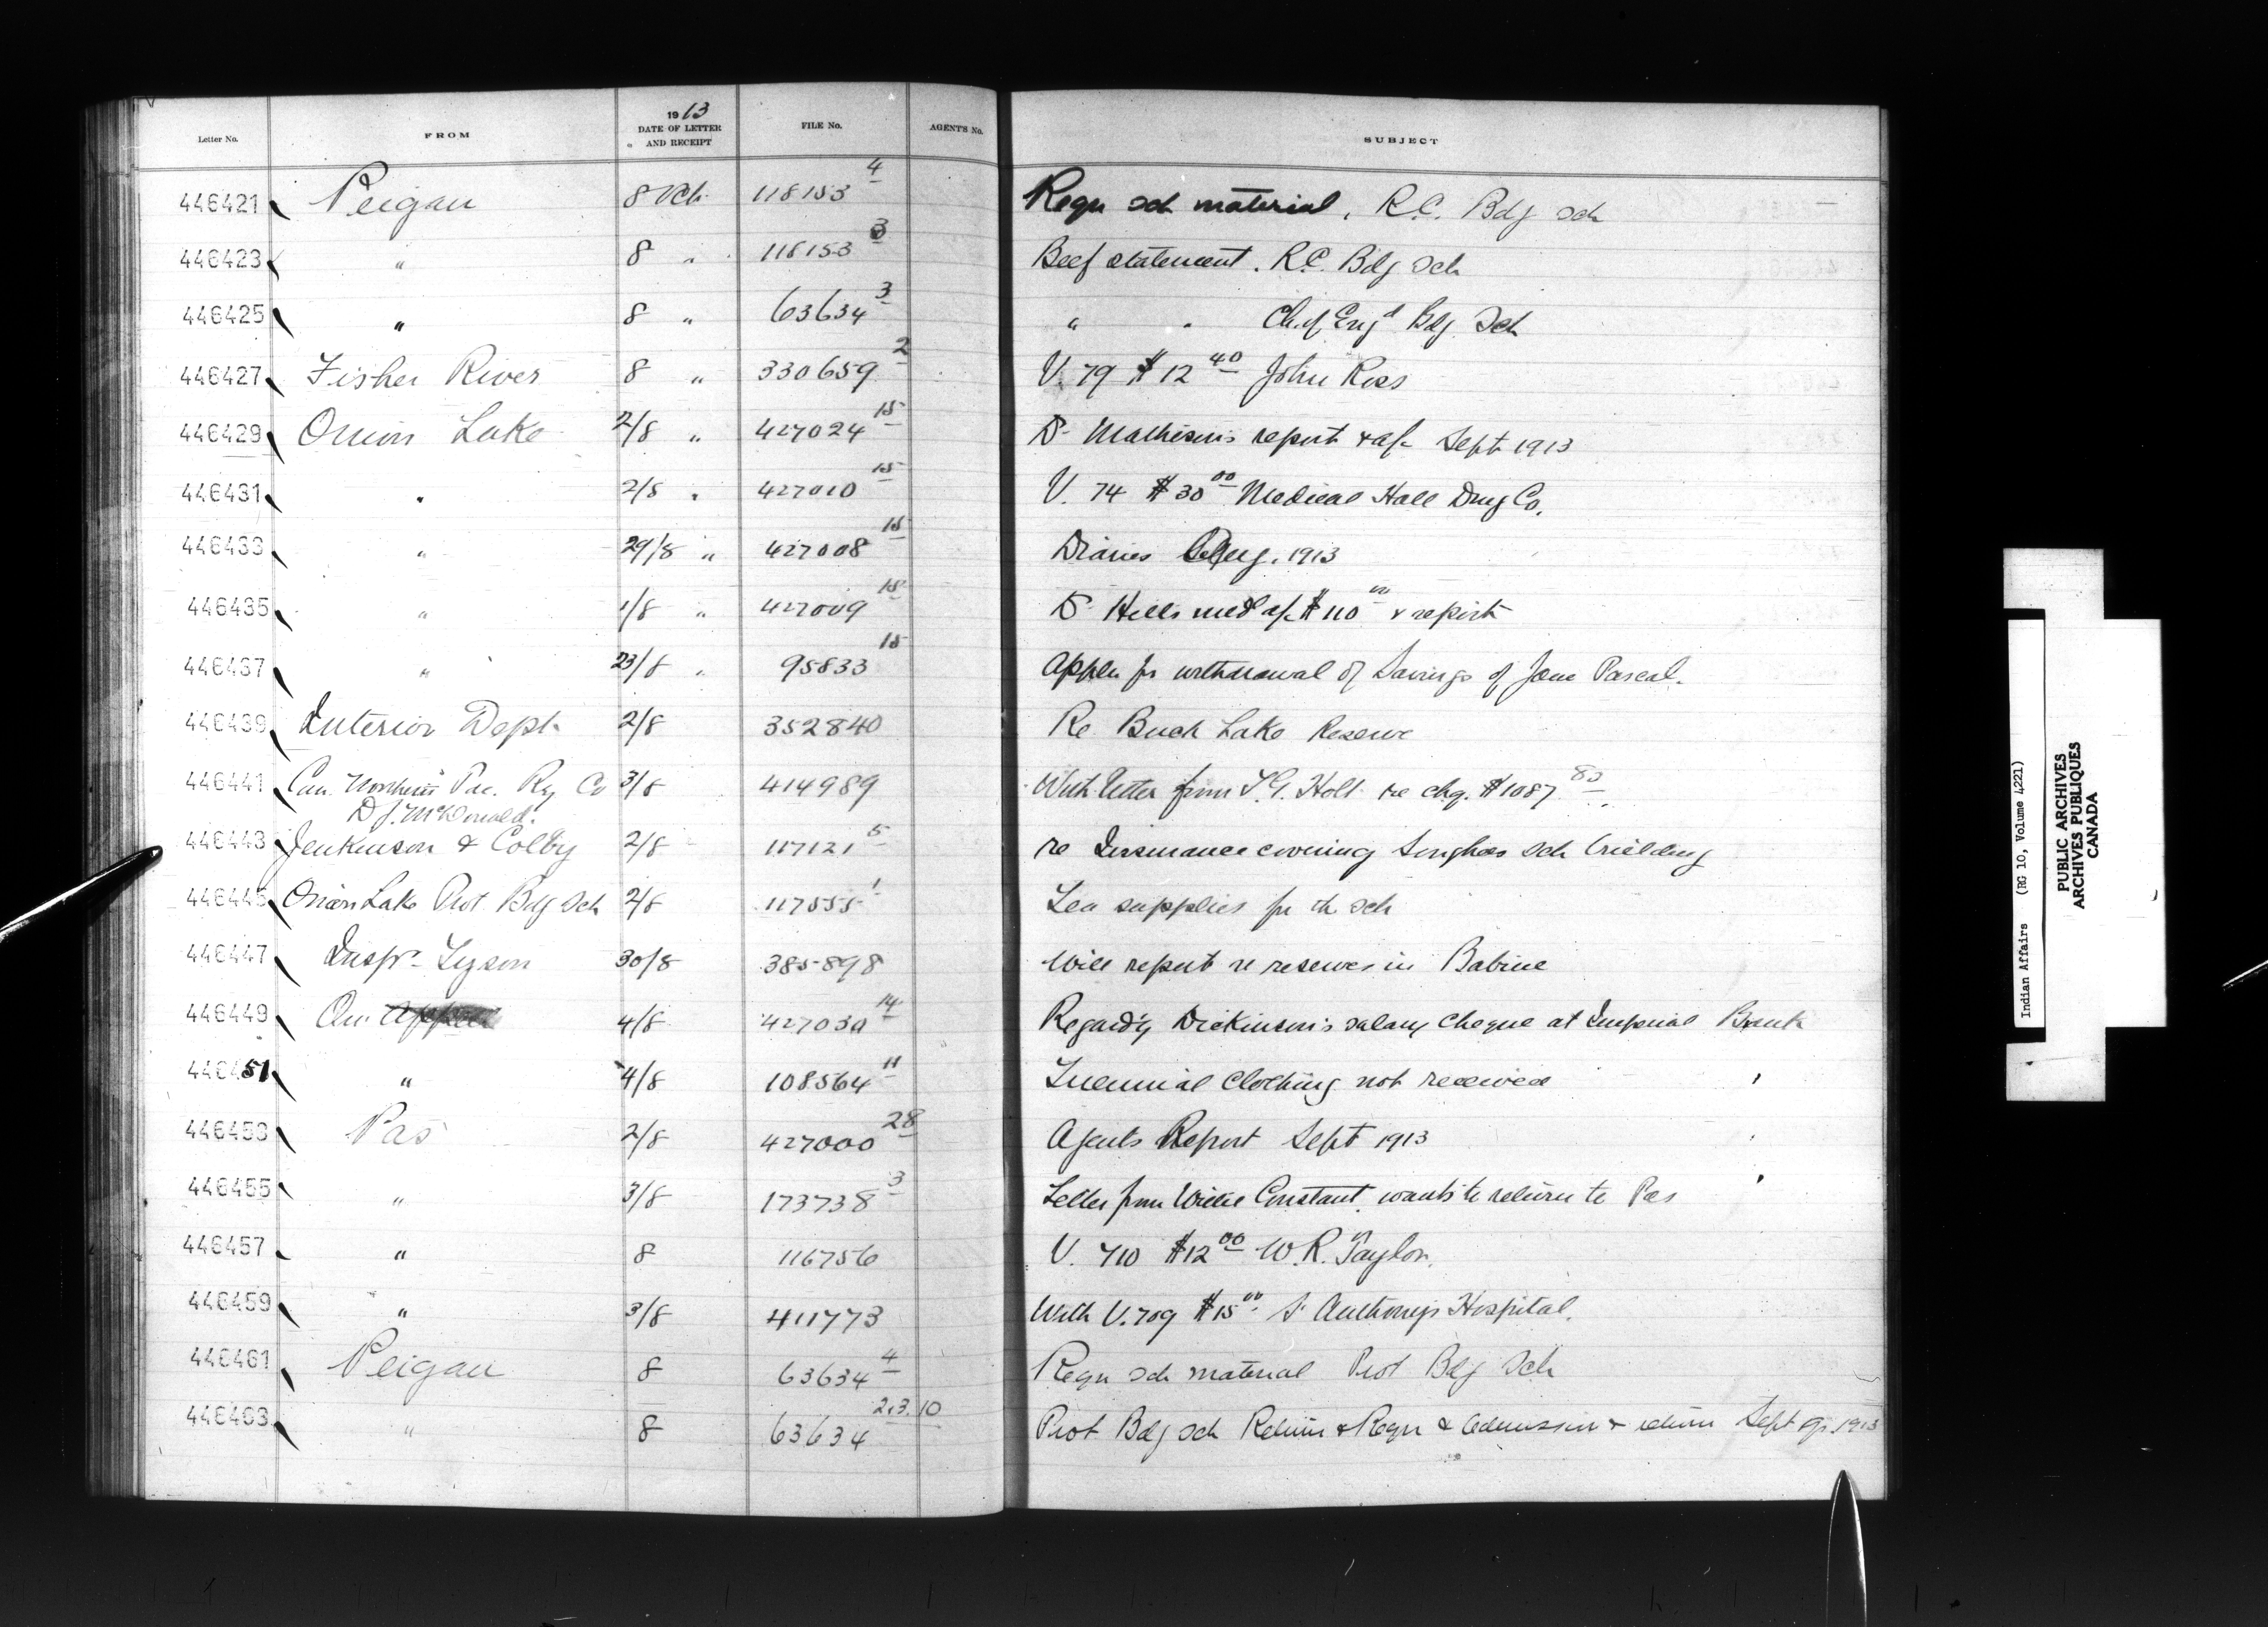 Letter No. FROM 1913 DATE OF LETTER AND RECEIPT FILE No. AGENT'S No. SUBJECT
446421 Peigan 8 Oct. 118153 4 Requ sch material, R.C. Bdg Sch
446423 " 8 " 118153 3 Beef statement. R.C. Bdg Sch
446425 " 8 " 63634 3 " " Ch of Engd Bdg Sch
446427 Fisher River 8 " 330659 2 V. 79 $12 40 John Ross
446429 Onion Lake 2/8 " 427024 15 Dr Matheson's report & a/c Sept 1913
446431 " 2/8 " 427010 15 V. 74 $30 00 Medical Hall Drug Co.
446433 " 29/8 " 427008 15 Diaries Aug. 1913
446435 " 1/8 " 427009 15 Dr Hills med a/c $110 00 & report
446437 " 23/8 " 95833 15 Appln for withdrawal of Savings of Pascal.
446439 Interior Dept 2/8 352840 Re Buck Lake Reserve
446441 Can. Northern Pac. Ry Co 3/8 414989 With letter from T.G. Holt re chq. $1087 80
D.J. McDonald.
446443 Jenkinson & Colby 2/8 117121 5 re Insurance covering Songhees Sch building
446445 Onion Lake Prot Bdg Sch 2/8 117555 1 supplies for the sch
446447 Inspr Tyson 30/8 385898 Will report re reserves in Babine
446449 Qu Appelle 4/8 427030 14 Regard'g Dickinson's salary cheque at Imperial Bank
446451 " 4/8 108564 11 Triennial Clothing not received
446453 Pas 2/8 427000 28 Agents Report Sept 1913
446455 " 3/8 173738 3 Letter from Willie Constant, wants to return to Pas
446457 " 8 116756 V. 710 $12 00 W.R. Taylor.
446459 " 3/8 411773 With V. 709 $15 00 St Anthony's Hospital.
446461 Peigan 8 63634 4 Requ sch material Prot Bdg Sch
446463 " 8 63634 2.3.10 Prot Bdg Sch Return & Requ & Admission & return Sept qr. 1913
Indian Affairs (RG 10, Volume 4221)
PUBLIC ARCHIVES
ARCHIVES PUBLIQUES
CANADA